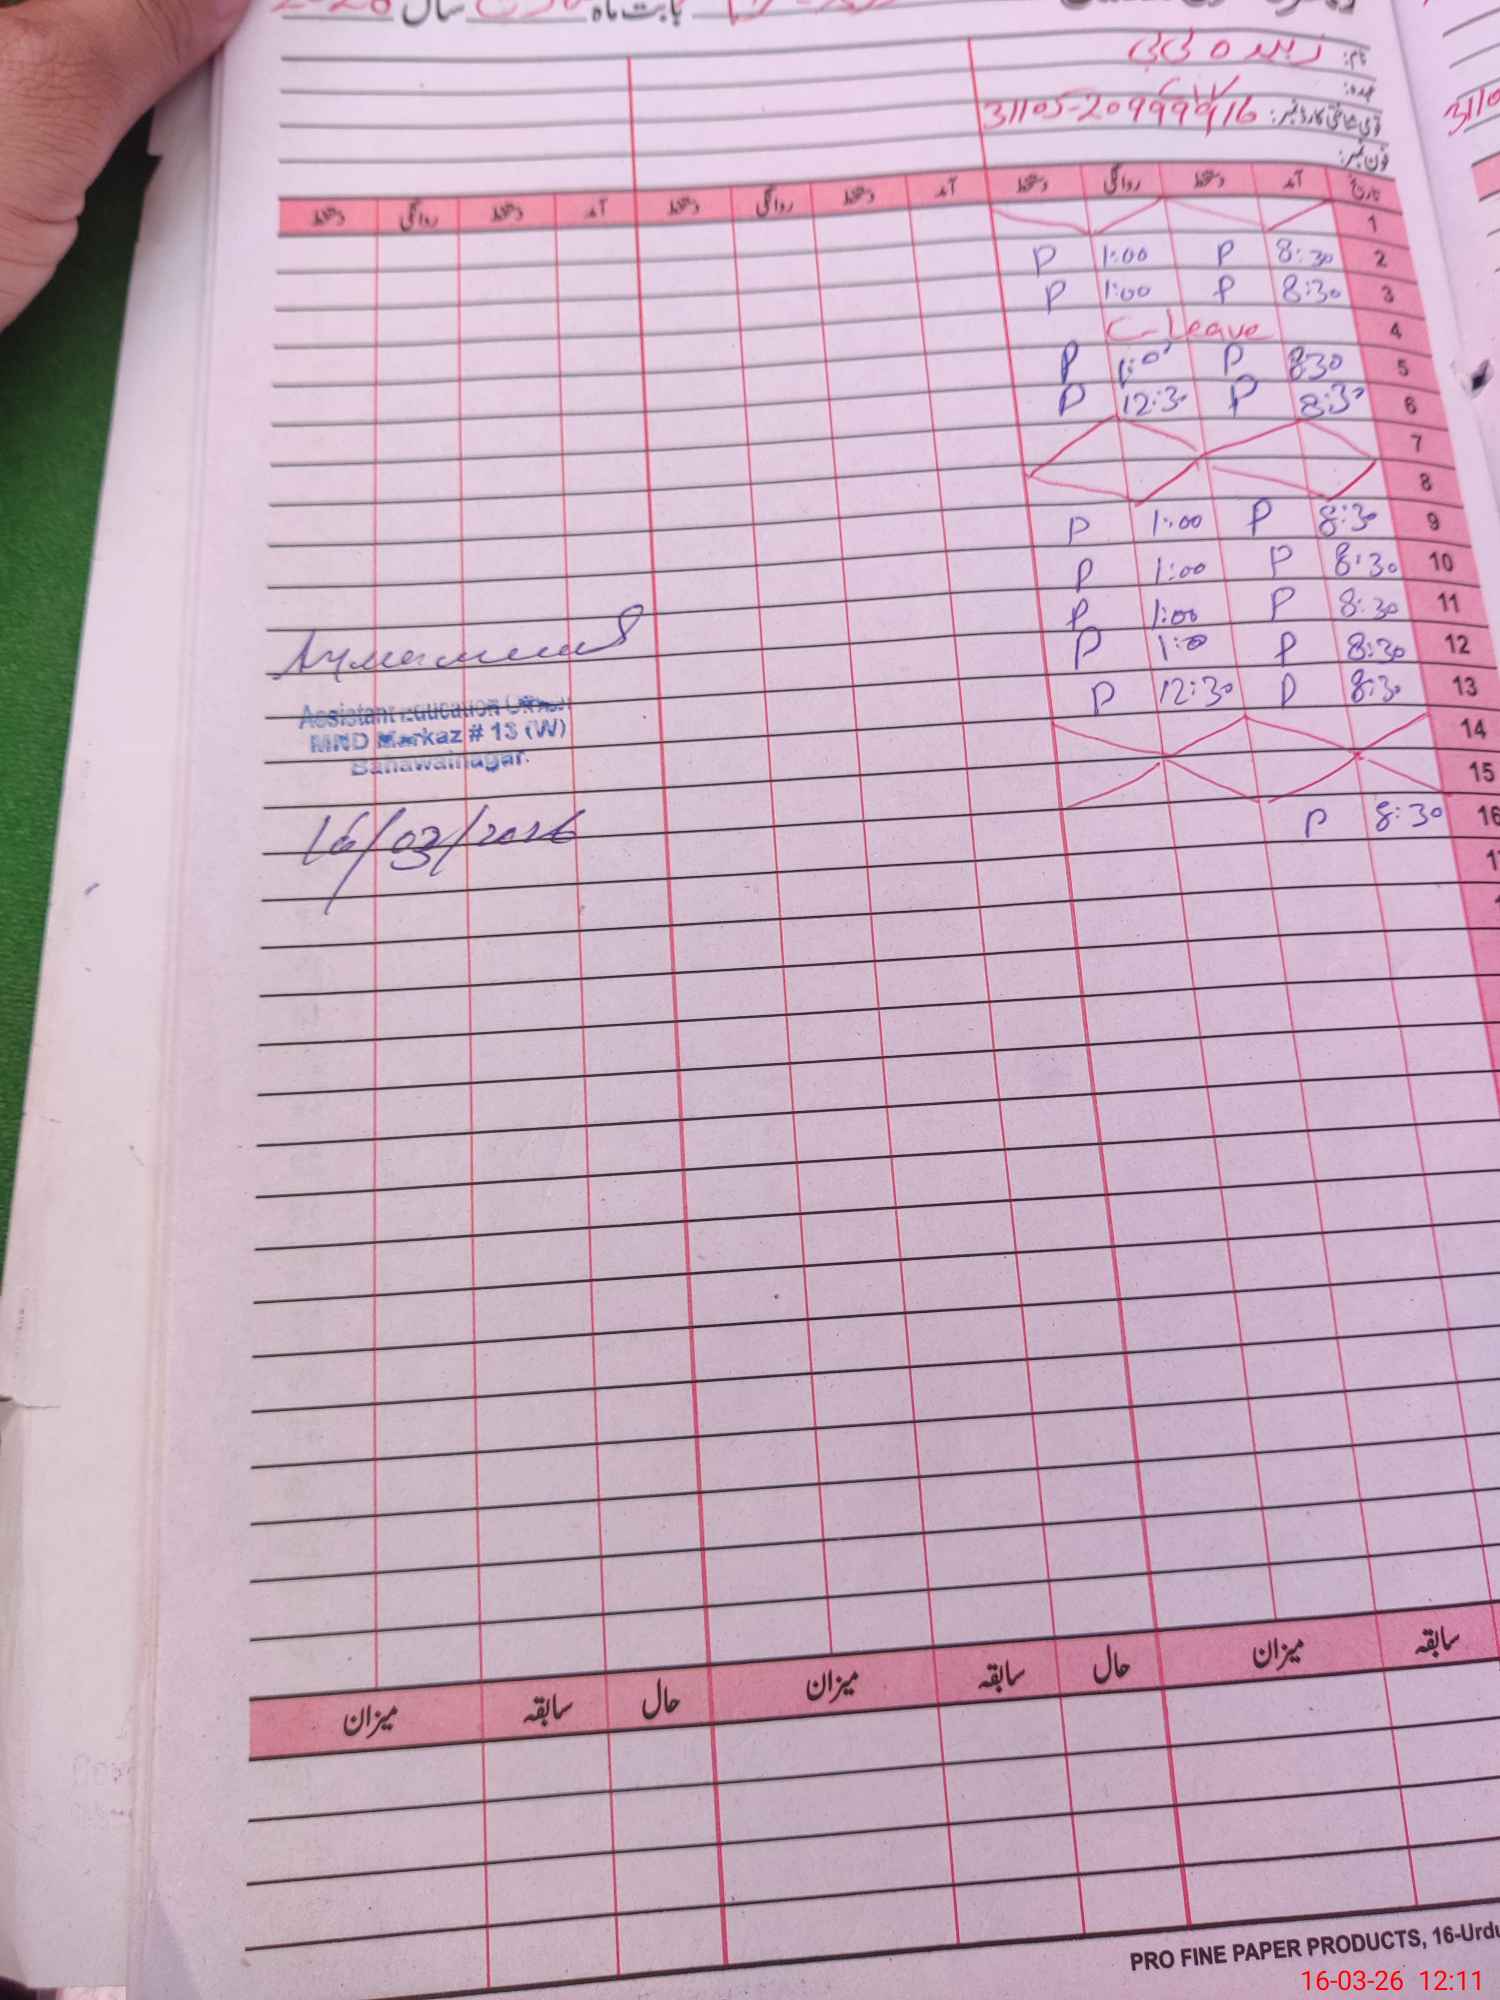 بابت ماہ سال 2026
نام: زبیدہ بی بی
عہدہ:
قومی شناختی کارڈ نمبر:
فون نمبر:
تاریخ آمد دستخط روانگی دستخط آمد دستخط روانگی دستخط آمد دستخط روانگی دستخط
1
2 8:30 P 1:00 P
3 8:30 P 1:00 P
4 C-Leave
5 8:30 P 1:00 P
6 8:30 P 12:30 P
7
8
9 8:30 P 1:00 P
10 8:30 P 1:00 P
11 8:30 P 1:00 P
12 8:30 P 1:00 P
13 8:30 P 12:30 P
14
15
16 8:30 P
Assistant Education Officer
MND Markaz # 13 (W)
Bahawalnagar.
16/03/2026
سابقہ میزان حال سابقہ میزان حال سابقہ میزان
PRO FINE PAPER PRODUCTS, 16-Urdu
16-03-26 12:11